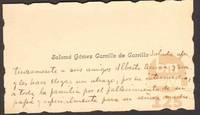 Salomé Gómez Carrillo de Carrillo Saluda afec
tuosamente a sus amigos Alberto
y les hace llegar un abrazo, por su intermedio
a toda la familia por el fallecimiento de su
papá y especialmente para su